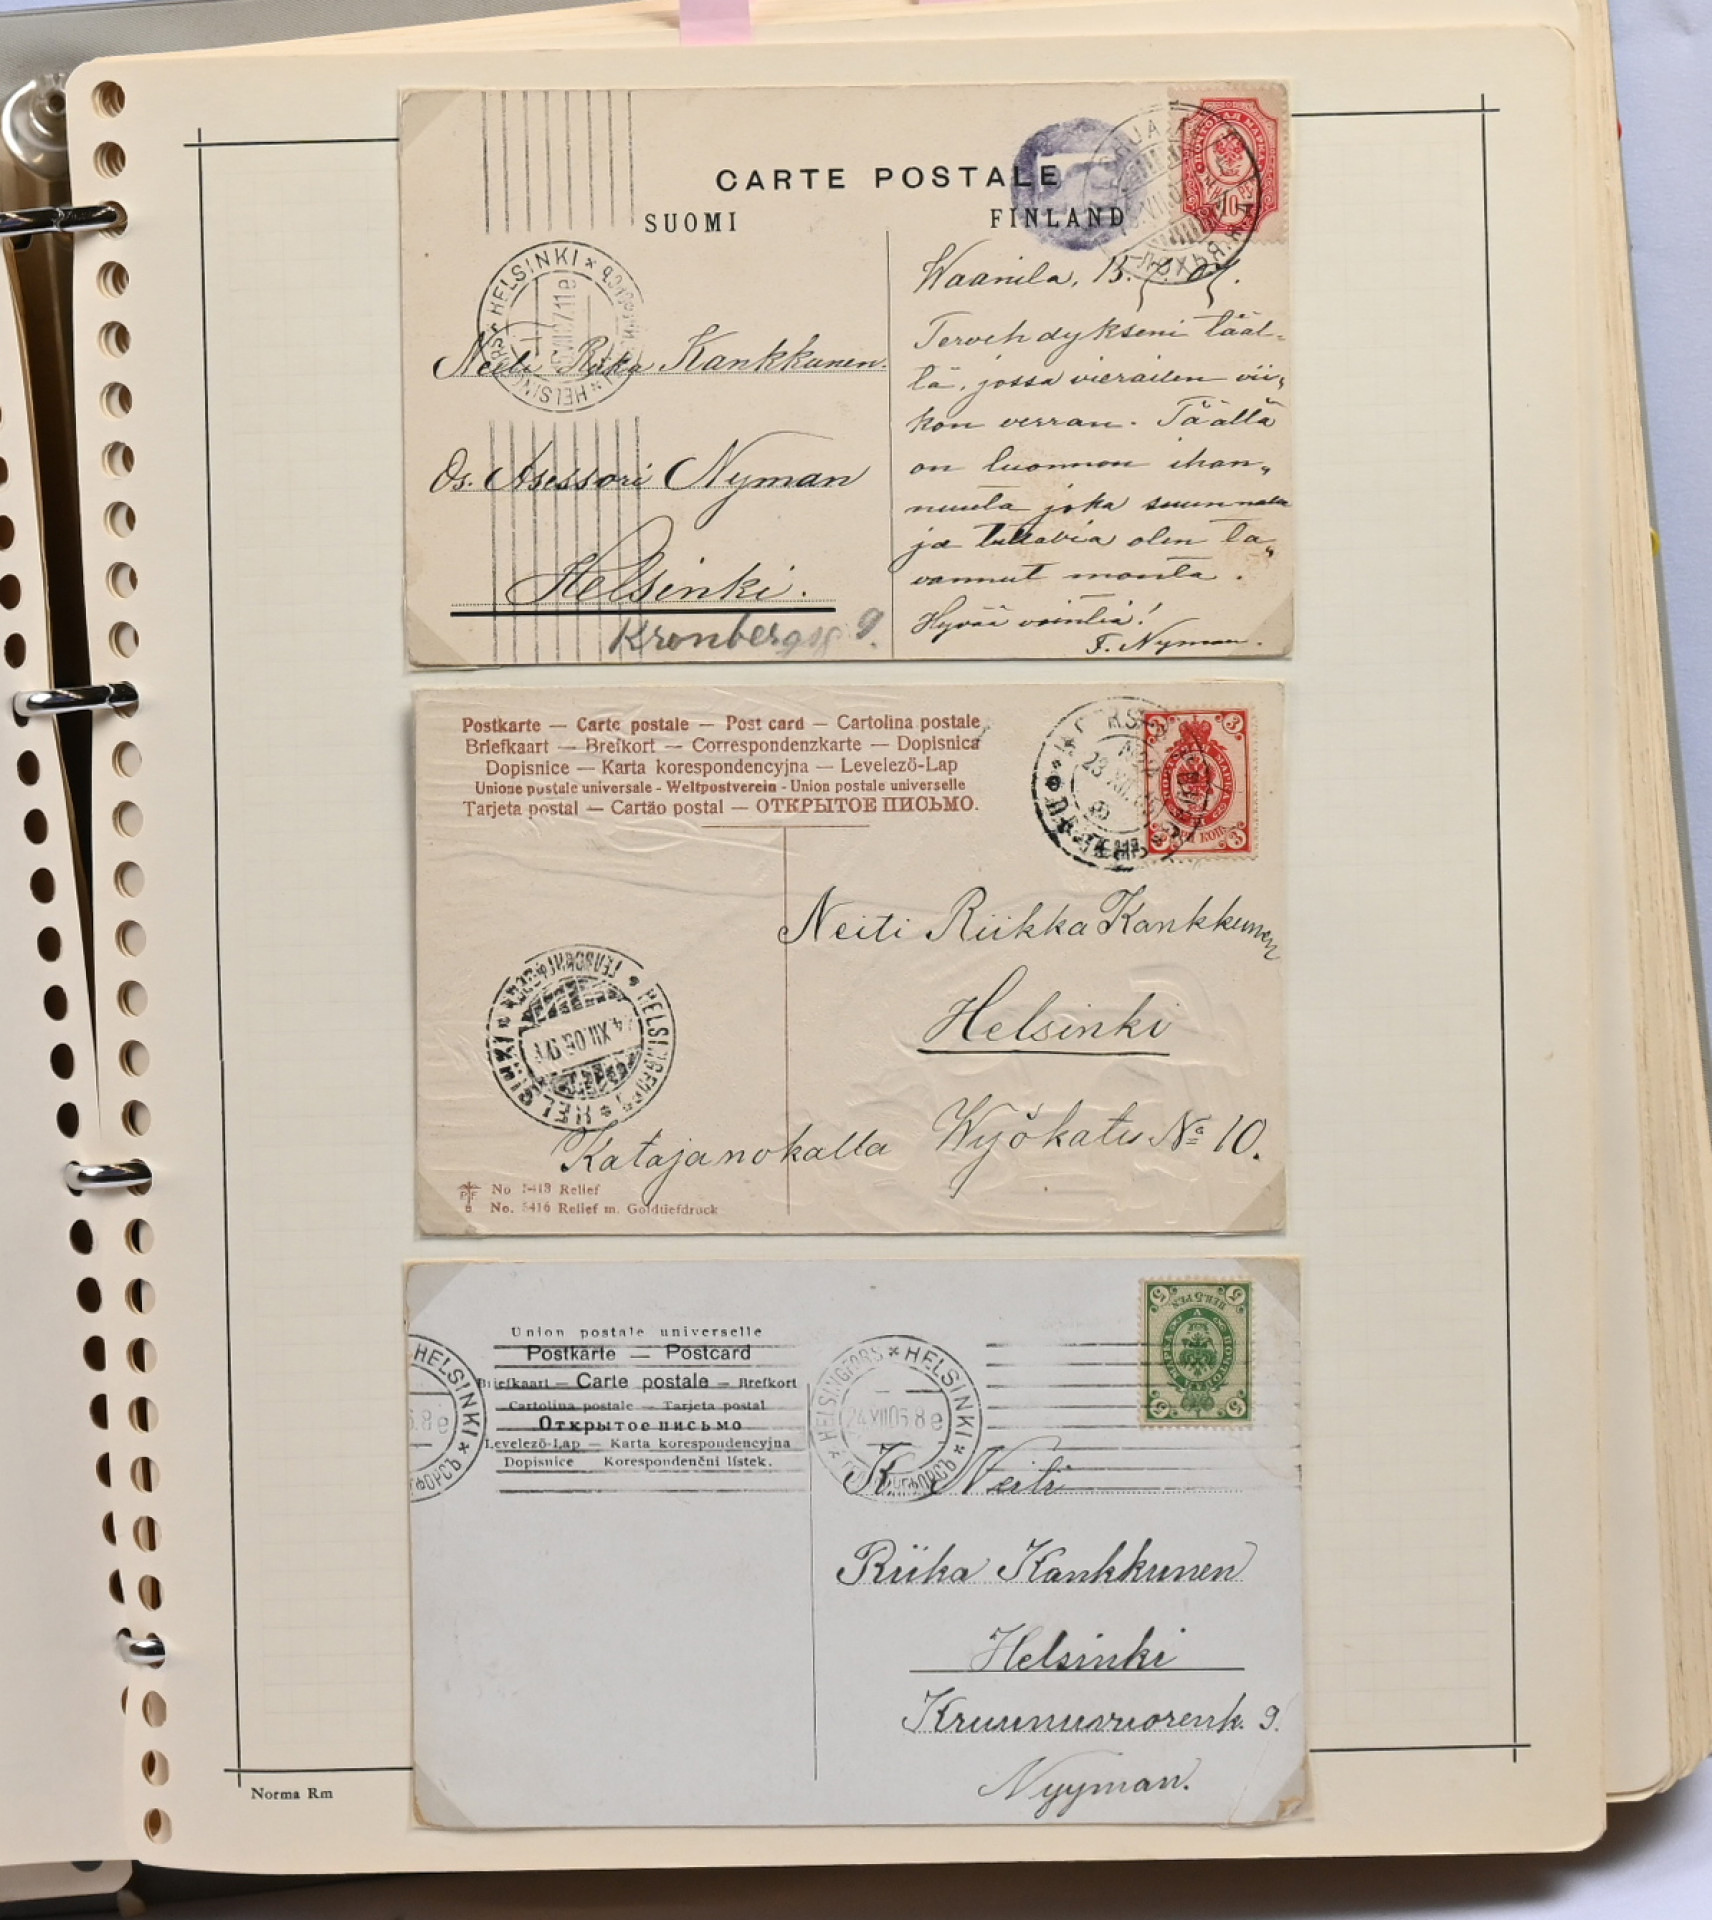 CARTE POSTALE
SUOMI FINLAND
HELSINKI
Waanila, 13.7.07.
Tervehdykseni tääl-
lä, jossa vierailen vii„
kon verran. Täällä
on luonnon ihan„
nuuta joka suunnalla
ja tuttavia olen ta„
vannut monta.
Hyvää vointia!
F. Nyman.
Neiti Riika Kankkunen.
Os. Asessori Nyman
Helsinki.
Kronbergsg 9.
Postkarte — Carte postale — Post card — Cartolina postale
Briefkaart — Brefkort — Correspondenzkarte — Dopisnica
Dopisnice — Karta korespondencyjna — Levelező-Lap
Unione postale universale - Weltpostverein - Union postale universelle
Tarjeta postal — Cartão postal — ОТКРЫТОЕ ПИСЬМО.
3 3
3 3
Neiti Riikka Kankkunen
Helsinki
Katajanokalla Wyökatu № 10.
HELSINKI
No 5413 Relief
No. 5416 Relief m. Goldtiefdruck
Union postale universelle
Postkarte — Postcard
Briefkaart — Carte postale — Brefkort
Cartolina postale — Tarjeta postal
Открытое письмо
Levelező-Lap — Karta korespondencyjna
Dopisnice Korespondenčni lístek.
HELSINKI
HELSINGFORS HELSINKI
24 VII 05.8 e
5 5
5 5
K. Neiti
Riika Kankkunen
Helsinki
Kruunuvuorenk. 9.
Nyyman.
Norma Rm